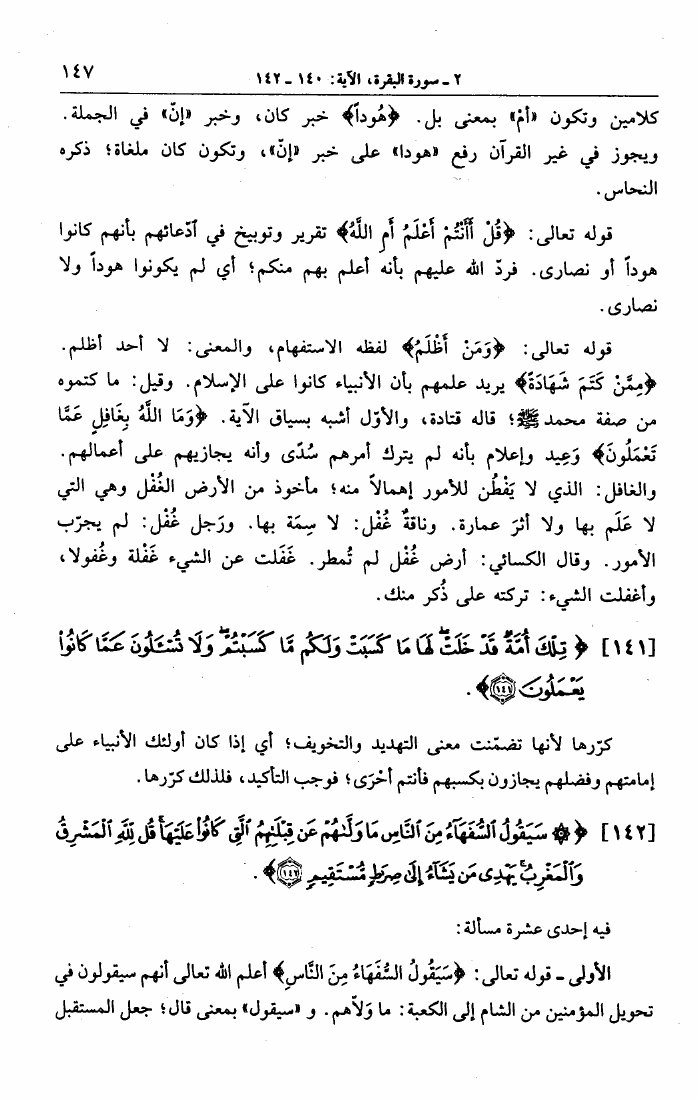 ٢ ـ سورة البقرة، الآية: ١٤٠ ـ ١٤٢
١٤٧
كلامين وتكون «أمْ» بمعنى بل. ﴿هُوداً﴾ خبر كان، وخبر «إنّ» في الجملة.
ويجوز في غير القرآن رفع «هودا» على خبر «إنّ»، وتكون كان ملغاة؛ ذكره
النحاس.
قوله تعالى: ﴿قُلْ أَأَنْتُمْ أَعْلَمُ أَمِ اللَّهُ﴾ تقرير وتوبيخ في ٱدّعائهم بأنهم كانوا
هوداً أو نصارى. فردّ الله عليهم بأنه أعلم بهم منكم؛ أي لم يكونوا هوداً ولا
نصارى.
قوله تعالى: ﴿وَمَنْ أَظْلَمُ﴾ لفظه الاستفهام، والمعنى: لا أحد أظلم.
﴿مِمَّنْ كَتَمَ شَهَادَةً﴾ يريد علمهم بأن الأنبياء كانوا على الإسلام. وقيل: ما كتموه
من صفة محمد ﷺ؛ قاله قتادة، والأوّل أشبه بسياق الآية. ﴿وَمَا اللَّهُ بِغَافِلٍ عَمَّا
تَعْمَلُونَ﴾ وَعِيد وإعلام بأنه لم يترك أمرهم سُدًى وأنه يجازيهم على أعمالهم.
والغافل: الذي لا يَفْطُن للأمور إهمالاً منه؛ مأخوذ من الأرض الغُفْل وهي التي
لا عَلَم بها ولا أثرَ عمارة. وناقةٌ غُفْل: لا سِمَة بها. ورَجل غُفْل: لم يجرّب
الأمور. وقال الكسائي: أرض غُفْل لم تُمطر. غَفَلت عن الشيء غَفْلة وغُفولا،
وأغفلت الشيء: تركته على ذُكر منك.
[١٤١] ﴿تِلْكَ أُمَّةٌ قَدْ خَلَتْۖ لَهَا مَا كَسَبَتْ وَلَكُم مَّا كَسَبْتُمْۖ وَلَا تُسْـَٔلُونَ عَمَّا كَانُوا۟
يَعْمَلُونَ ١٤١﴾.
كرّرها لأنها تضمّنت معنى التهديد والتخويف؛ أي إذا كان أولئك الأنبياء على
إمامتهم وفضلهم يجازون بكسبهم فأنتم أحْرَى؛ فوجب التأكيد، فلذلك كرّرها.
[١٤٢] ﴿۞ سَيَقُولُ ٱلسُّفَهَآءُ مِنَ ٱلنَّاسِ مَا وَلَّىٰهُمْ عَن قِبْلَتِهِمُ ٱلَّتِى كَانُوا۟ عَلَيْهَاۚ قُل لِّلَّهِ ٱلْمَشْرِقُ
وَٱلْمَغْرِبُۚ يَهْدِى مَن يَشَآءُ إِلَىٰ صِرَٰطٍ مُّسْتَقِيمٍ ١٤٢﴾.
فيه إحدى عشرة مسألة:
الأولى ـ قوله تعالى: ﴿سَيَقُولُ السُّفَهَاءُ مِنَ النَّاسِ﴾ أعلم الله تعالى أنهم سيقولون في
تحويل المؤمنين من الشام إلى الكعبة: ما وَلاّهم. و «سيقول» بمعنى قال؛ جعل المستقبل